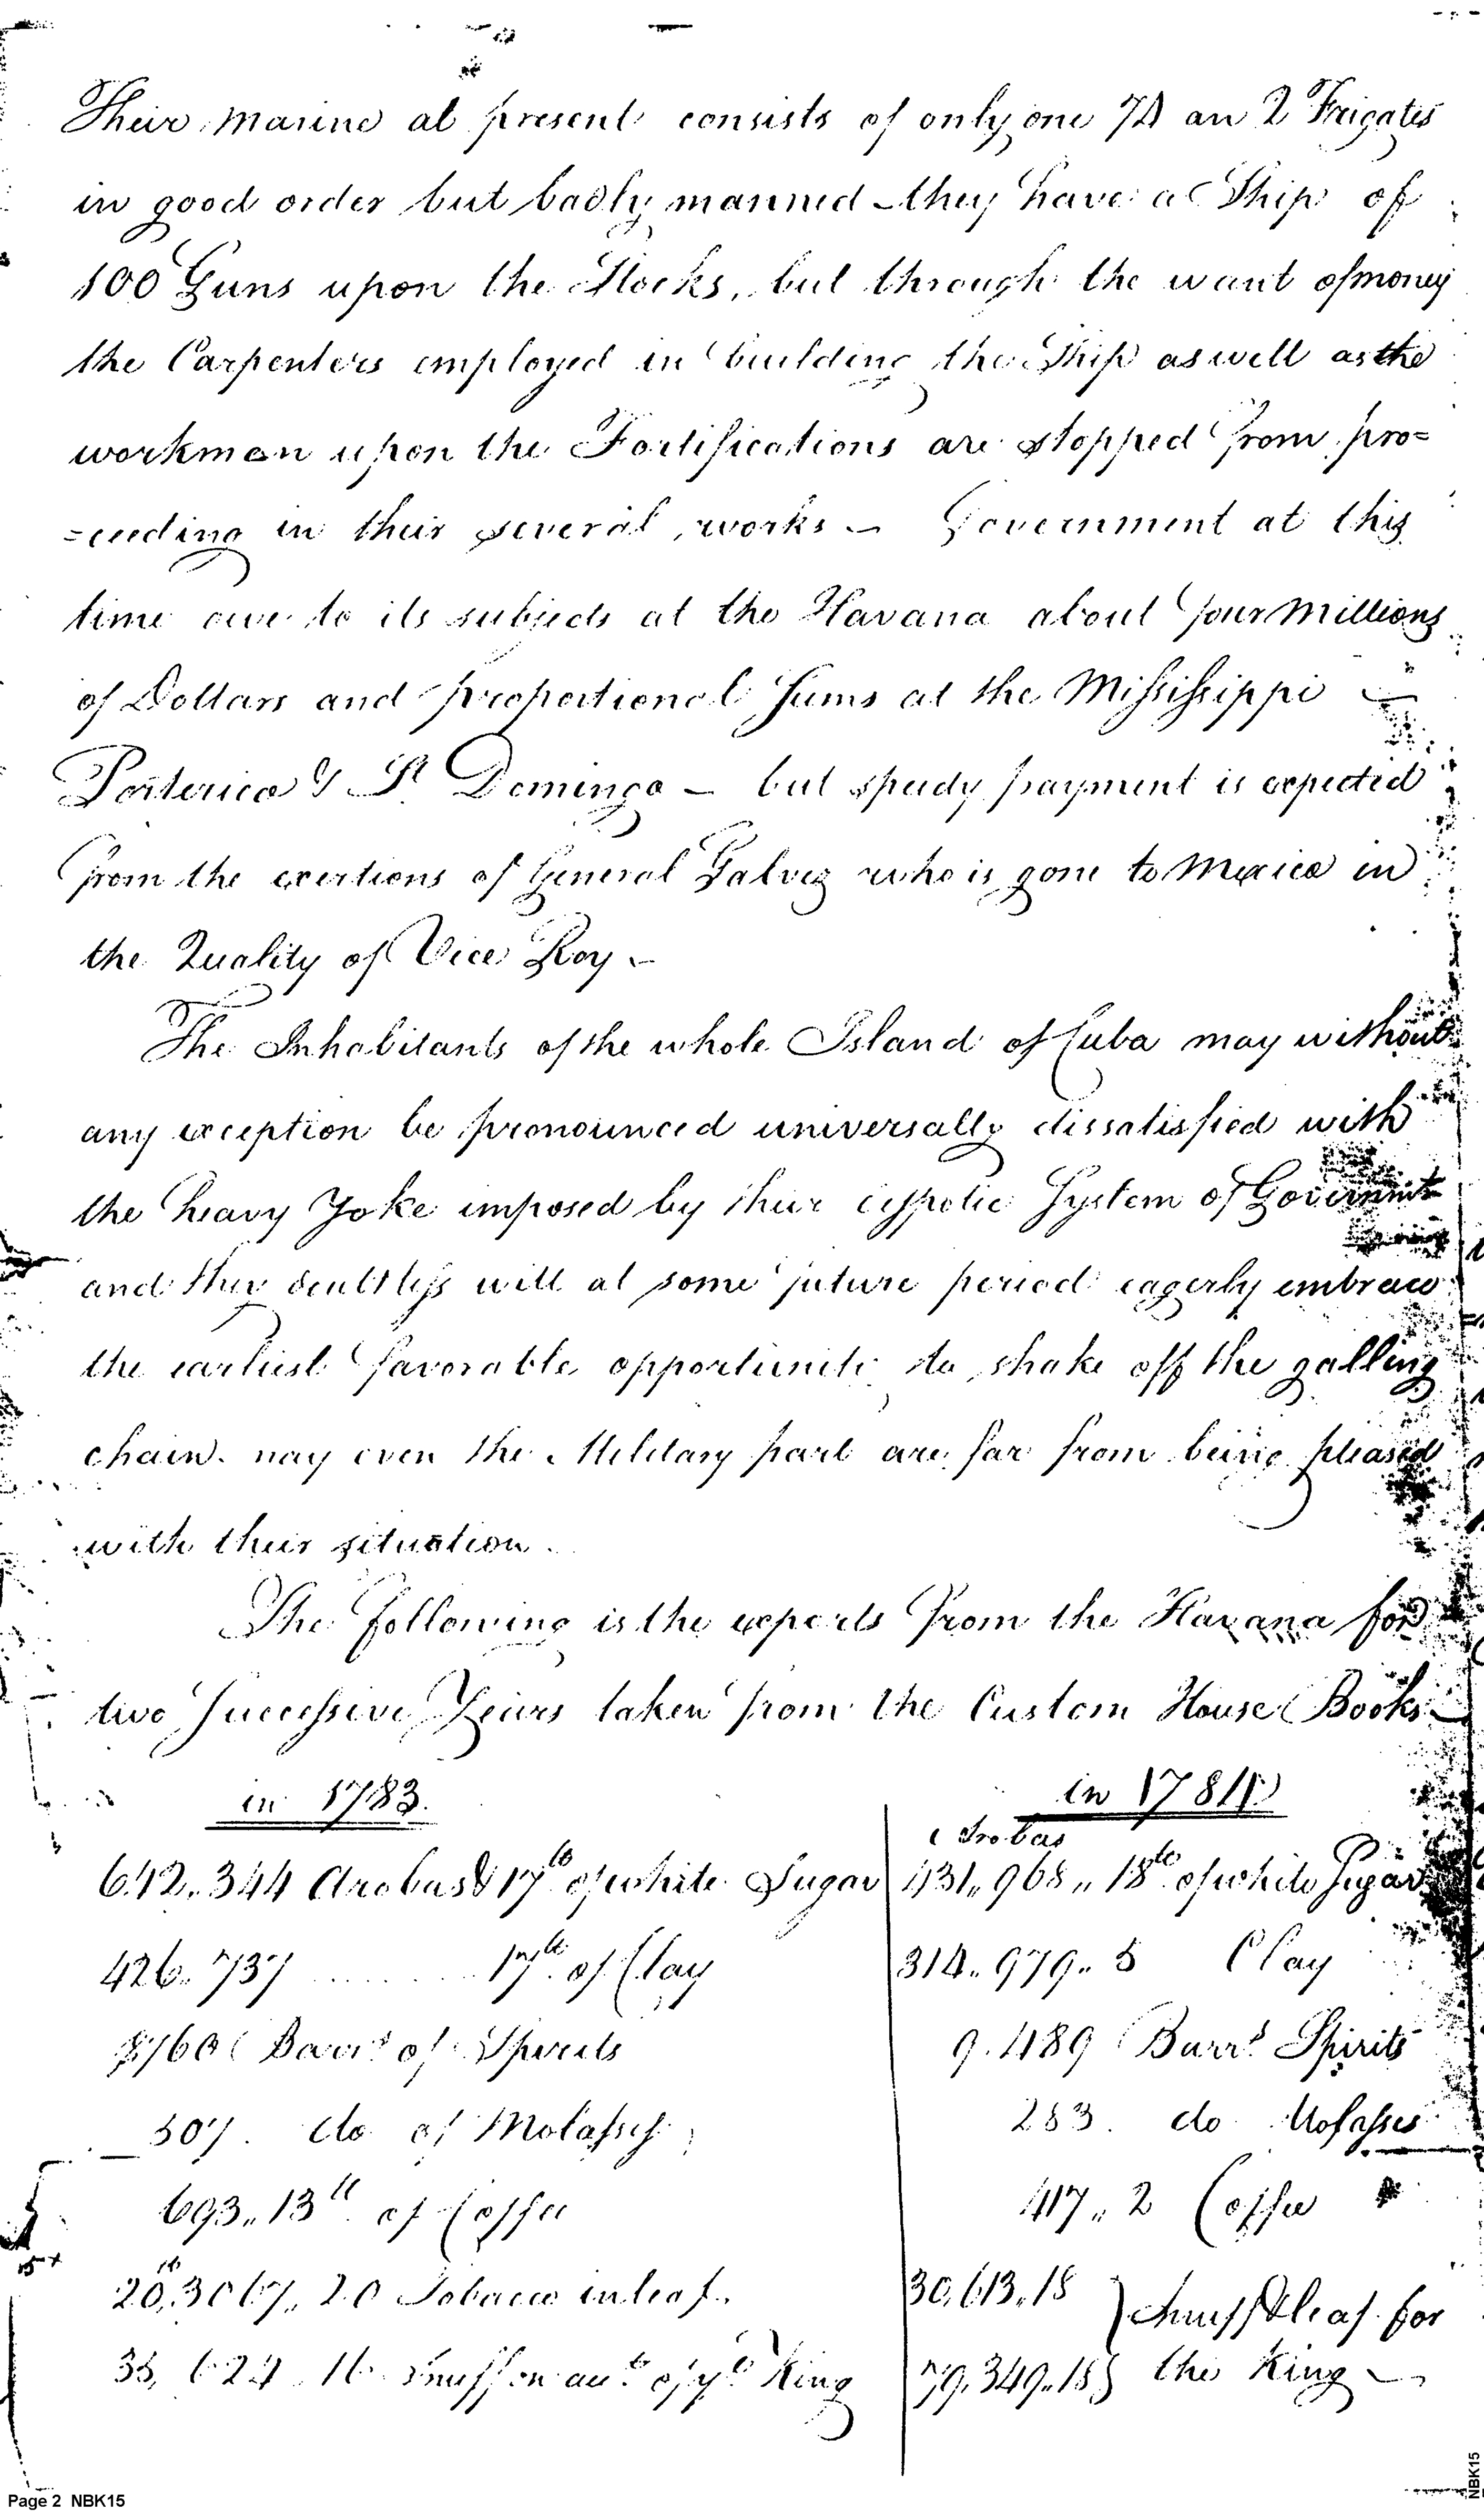 Their marine at present consists of only one 74 an 2 Frigates
in good order but badly manned – they have a Ship of
100 Guns upon the Stocks, but through the want of money
the Carpenters employed in building the Ship as well as the
workman upon the Fortifications are stopped from pro=
=ceeding in their several works – Government at this
time owe to its subjects at the Havana about four Millions
of Dollars and proportional Sums at the Mississippi –
Porterico & St Domingo – but speedy payment is expected
from the exertions of General Galvez who is gone to Mexico in
the Quality of Vice Roy –
The Inhabitants of the whole Island of Cuba may without
any exception be pronounced universally dissatisfied with
the heavy Yoke imposed by their System of Governmt
and they doubtless will at some future period eagerly embrace
the earliest favorable opportunity to shake off the galling
chain. nay even the Military part are far from being pleased
with their situation.
The following is the exports from the Havana for
two Successive Years taken from the Custom House Books –
in 1783.
642.344 Arobas & 17lb of white Sugar
426.737 ........ 17lb of Clay
8760 Barrs of Spirits
307. do of Molasses
693.. 13lb of Coffee
20,3067.. 20 Tobacco in leaf.
35,624 16 Snuff on acct of ye King
in 1784
Arobas
431,,968,, 18lb of white Sugar
314,,979,, 5 Clay
9.489 Barrs Spirits
283. do Molasses
417,, 2 Coffee
30,613,,18 } Snuff & leaf for
79,349,,18 } the King –
Page 2 NBK15
NBK15